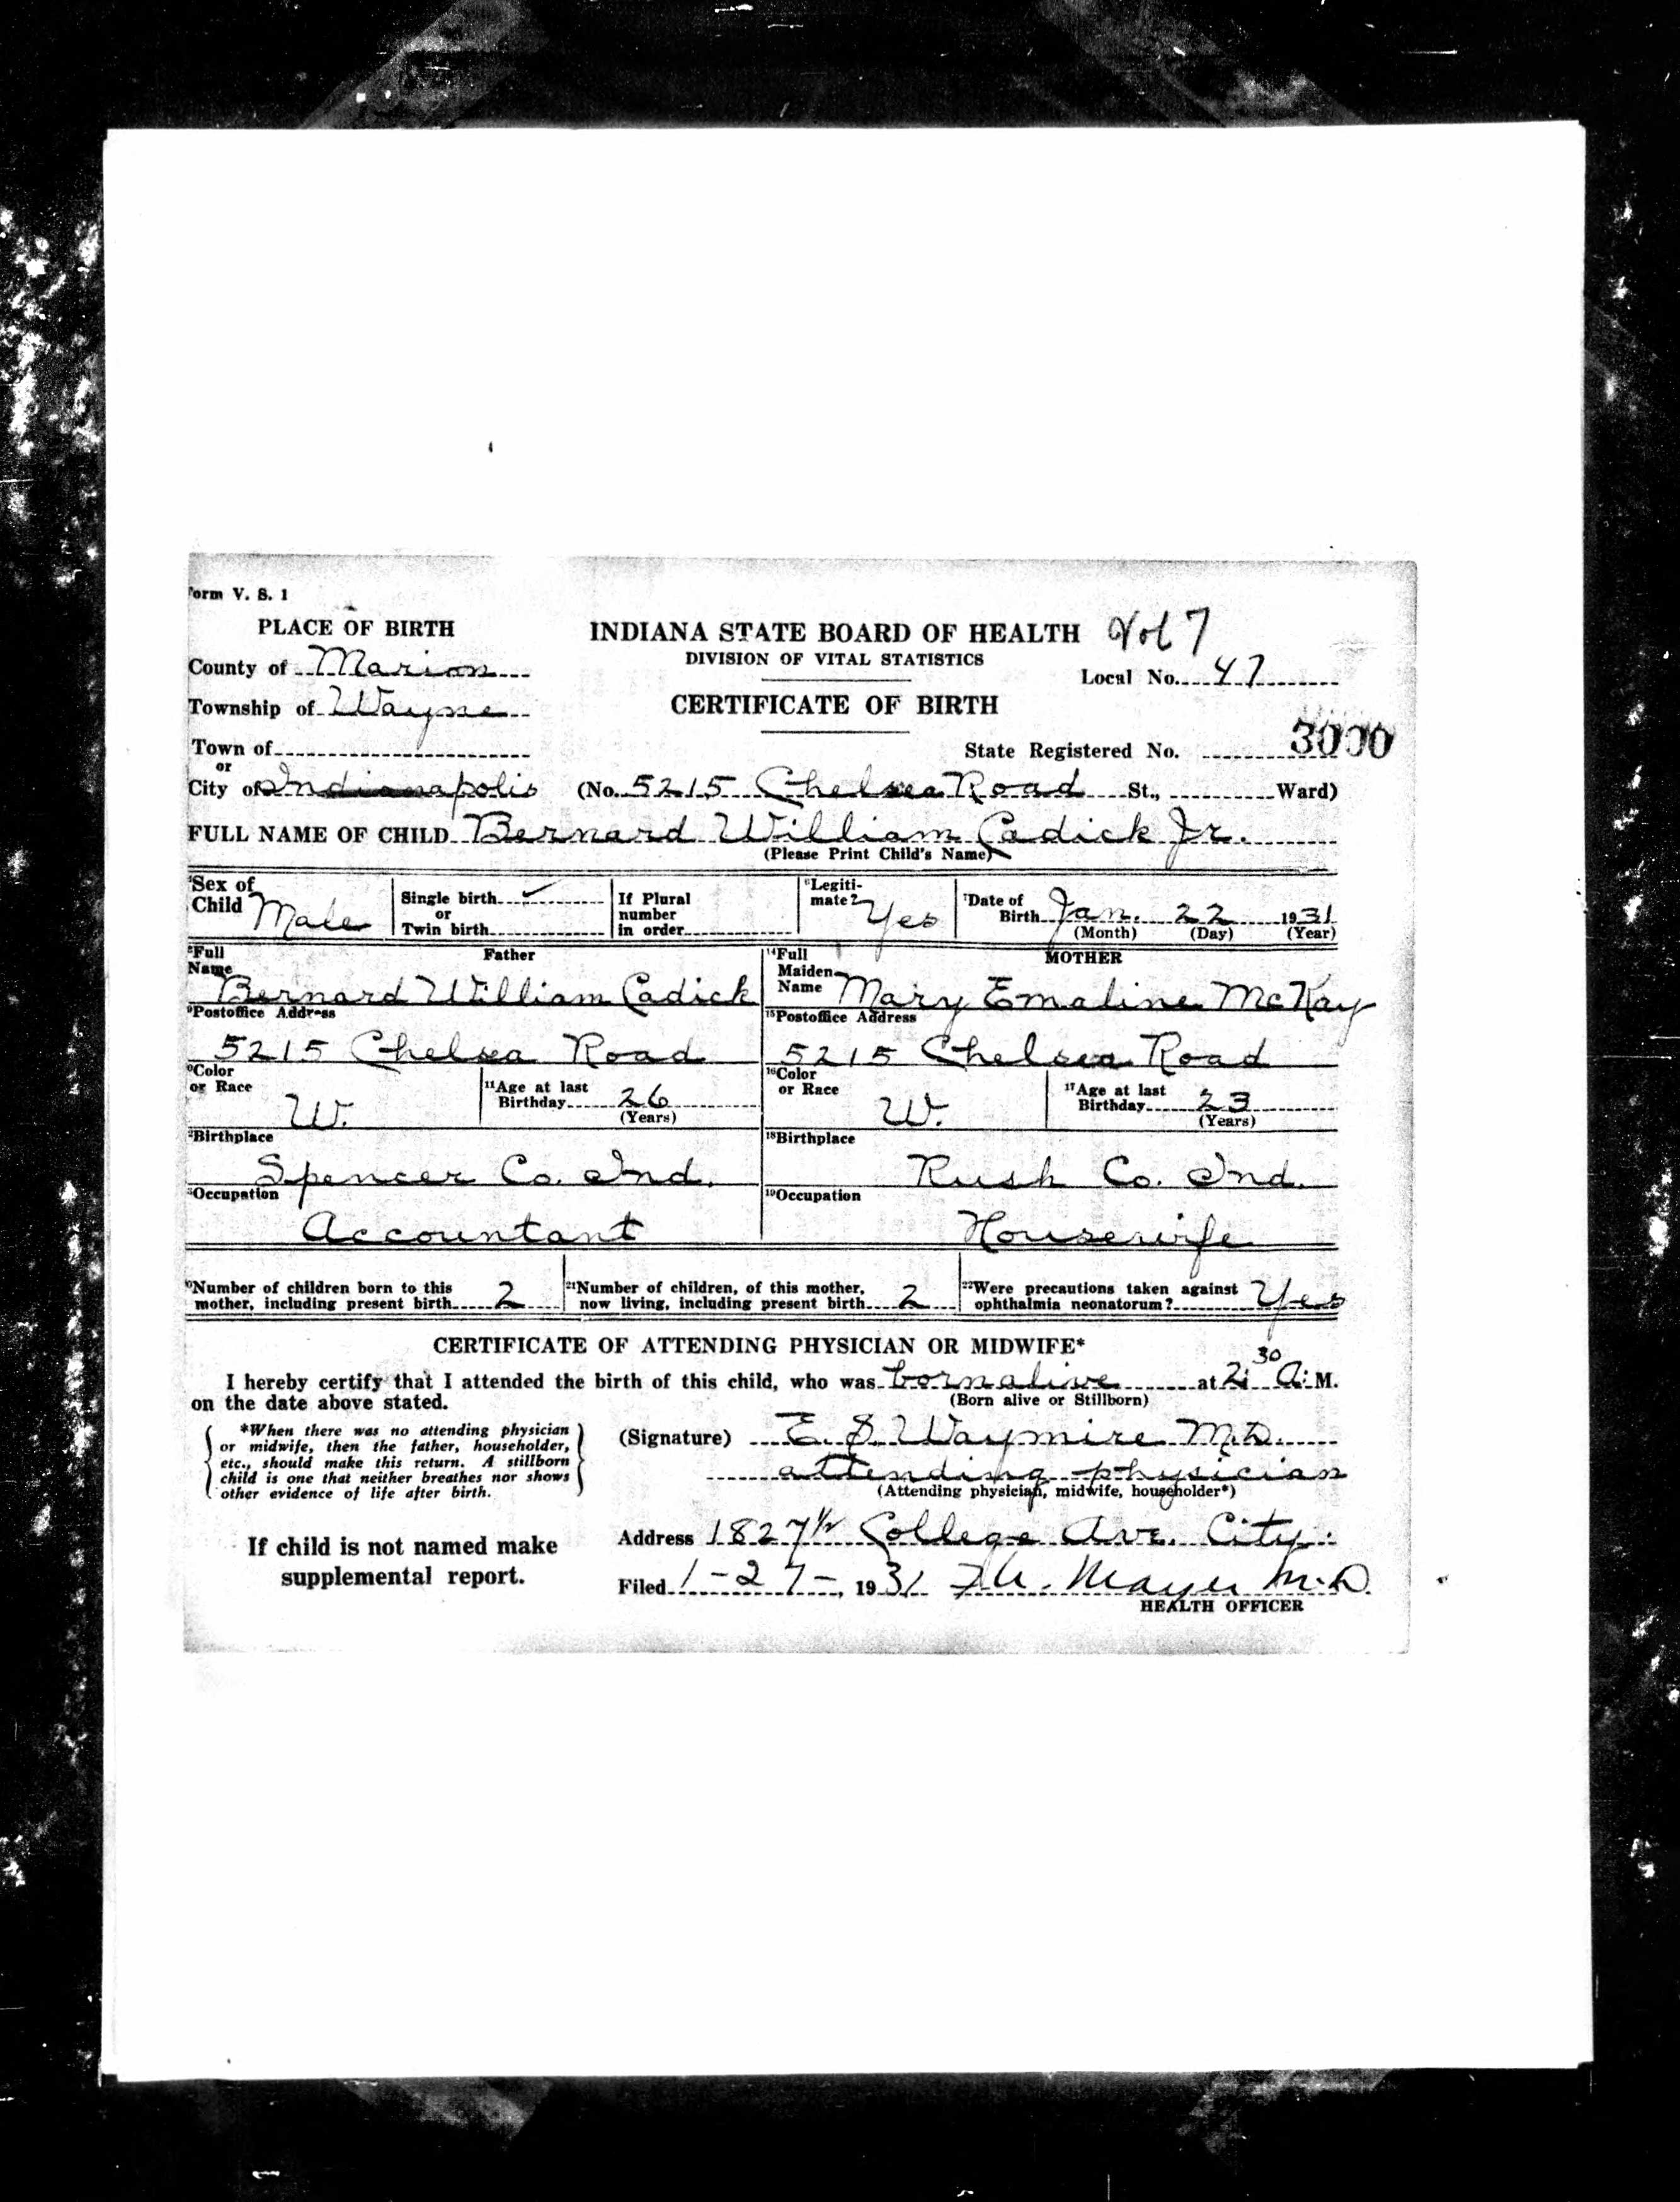 Form V. S. 1
PLACE OF BIRTH
INDIANA STATE BOARD OF HEALTH Vol 7
DIVISION OF VITAL STATISTICS
County of Marion
Local No. 47
Township of Wayne
CERTIFICATE OF BIRTH
Town of
State Registered No. 3000
or
City of Indianapolis (No. 5215 Chelsea Road St., Ward)
FULL NAME OF CHILD Bernard William Cadick Jr.
(Please Print Child's Name)
Sex of Child Male
Single birth ✓
or
Twin birth
If Plural
number
in order
6 Legiti-
mate? Yes
7 Date of
Birth Jan. 22 1931
(Month) (Day) (Year)
Father
8 Full
Name
Bernard William Cadick
9 Postoffice Address
5215 Chelsea Road
Color
or Race W.
11 Age at last
Birthday 26
(Years)
Birthplace
Spencer Co. Ind.
Occupation
Accountant
MOTHER
14 Full
Maiden
Name Mary Emaline McKay
15 Postoffice Address
5215 Chelsea Road
16 Color
or Race W.
17 Age at last
Birthday 23
(Years)
18 Birthplace
Rush Co. Ind.
19 Occupation
Housewife
Number of children born to this
mother, including present birth 2
21 Number of children, of this mother,
now living, including present birth 2
22 Were precautions taken against
ophthalmia neonatorum? Yes
CERTIFICATE OF ATTENDING PHYSICIAN OR MIDWIFE*
I hereby certify that I attended the birth of this child, who was born alive at 2:30 A. M.
(Born alive or Stillborn)
on the date above stated.
*When there was no attending physician
or midwife, then the father, householder,
etc., should make this return. A stillborn
child is one that neither breathes nor shows
other evidence of life after birth.
(Signature) E. S. Waymire M.D.
attending physician
(Attending physician, midwife, householder*)
If child is not named make
supplemental report.
Address 1827½ College Ave. City.
Filed 1-27-, 1931 Mayer M.D.
HEALTH OFFICER